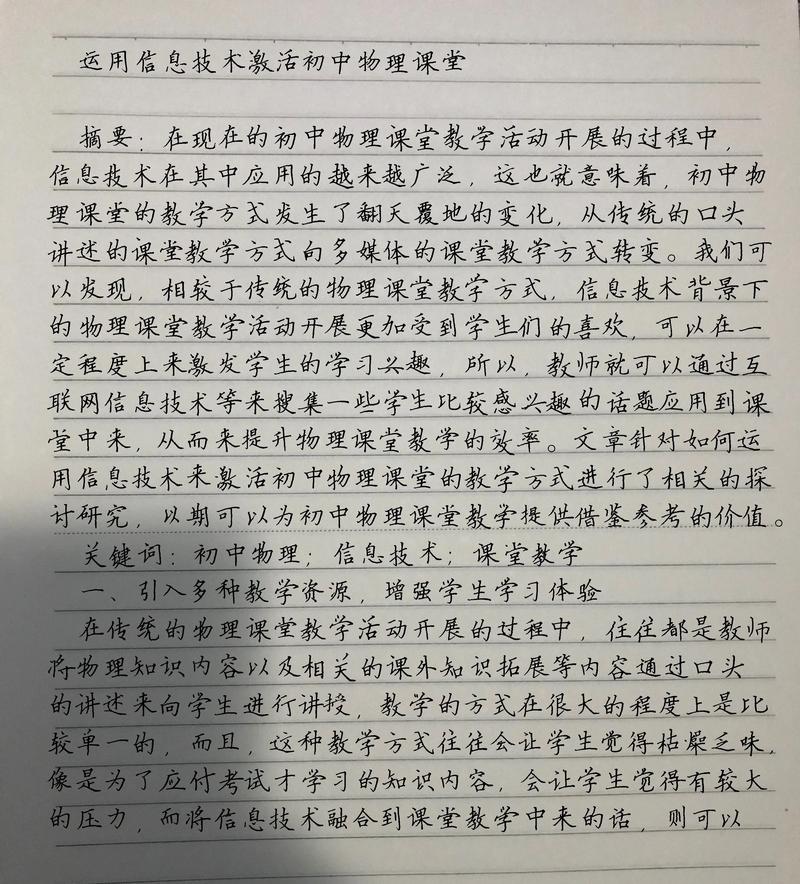 运用信息技术激活初中物理课堂
摘要：在现在的初中物理课堂教学活动开展的过程中，
信息技术在其中应用的越来越广泛，这也就意味着，初中物
理课堂的教学方式发生了翻天覆地的变化，从传统的口头
讲述的课堂教学方式向多媒体的课堂教学方式转变。我们可
以发现，相较于传统的物理课堂教学方式，信息技术背景下
的物理课堂教学活动开展更加受到学生们的喜欢，可以在一
定程度上来激发学生的学习兴趣，所以，教师就可以通过互
联网信息技术等来搜集一些学生比较感兴趣的话题应用到课
堂中来，从而来提升物理课堂教学的效率。文章针对如何运
用信息技术来激活初中物理课堂的教学方式进行了相关的探
讨研究，以期可以为初中物理课堂教学提供借鉴参考的价值。
关键词：初中物理；信息技术；课堂教学
一、引入多种教学资源，增强学生学习体验
在传统的物理课堂教学活动开展的过程中，往往都是教师
将物理知识内容以及相关的课外知识拓展等内容通过口头
的讲述来向学生进行讲授，教学的方式在很大的程度上是比
较单一的，而且，这种教学方式往往会让学生觉得枯燥乏味，
像是为了应付考试才学习的知识内容，会让学生觉得有较大
的压力，而将信息技术融合到课堂教学中来的话，则可以